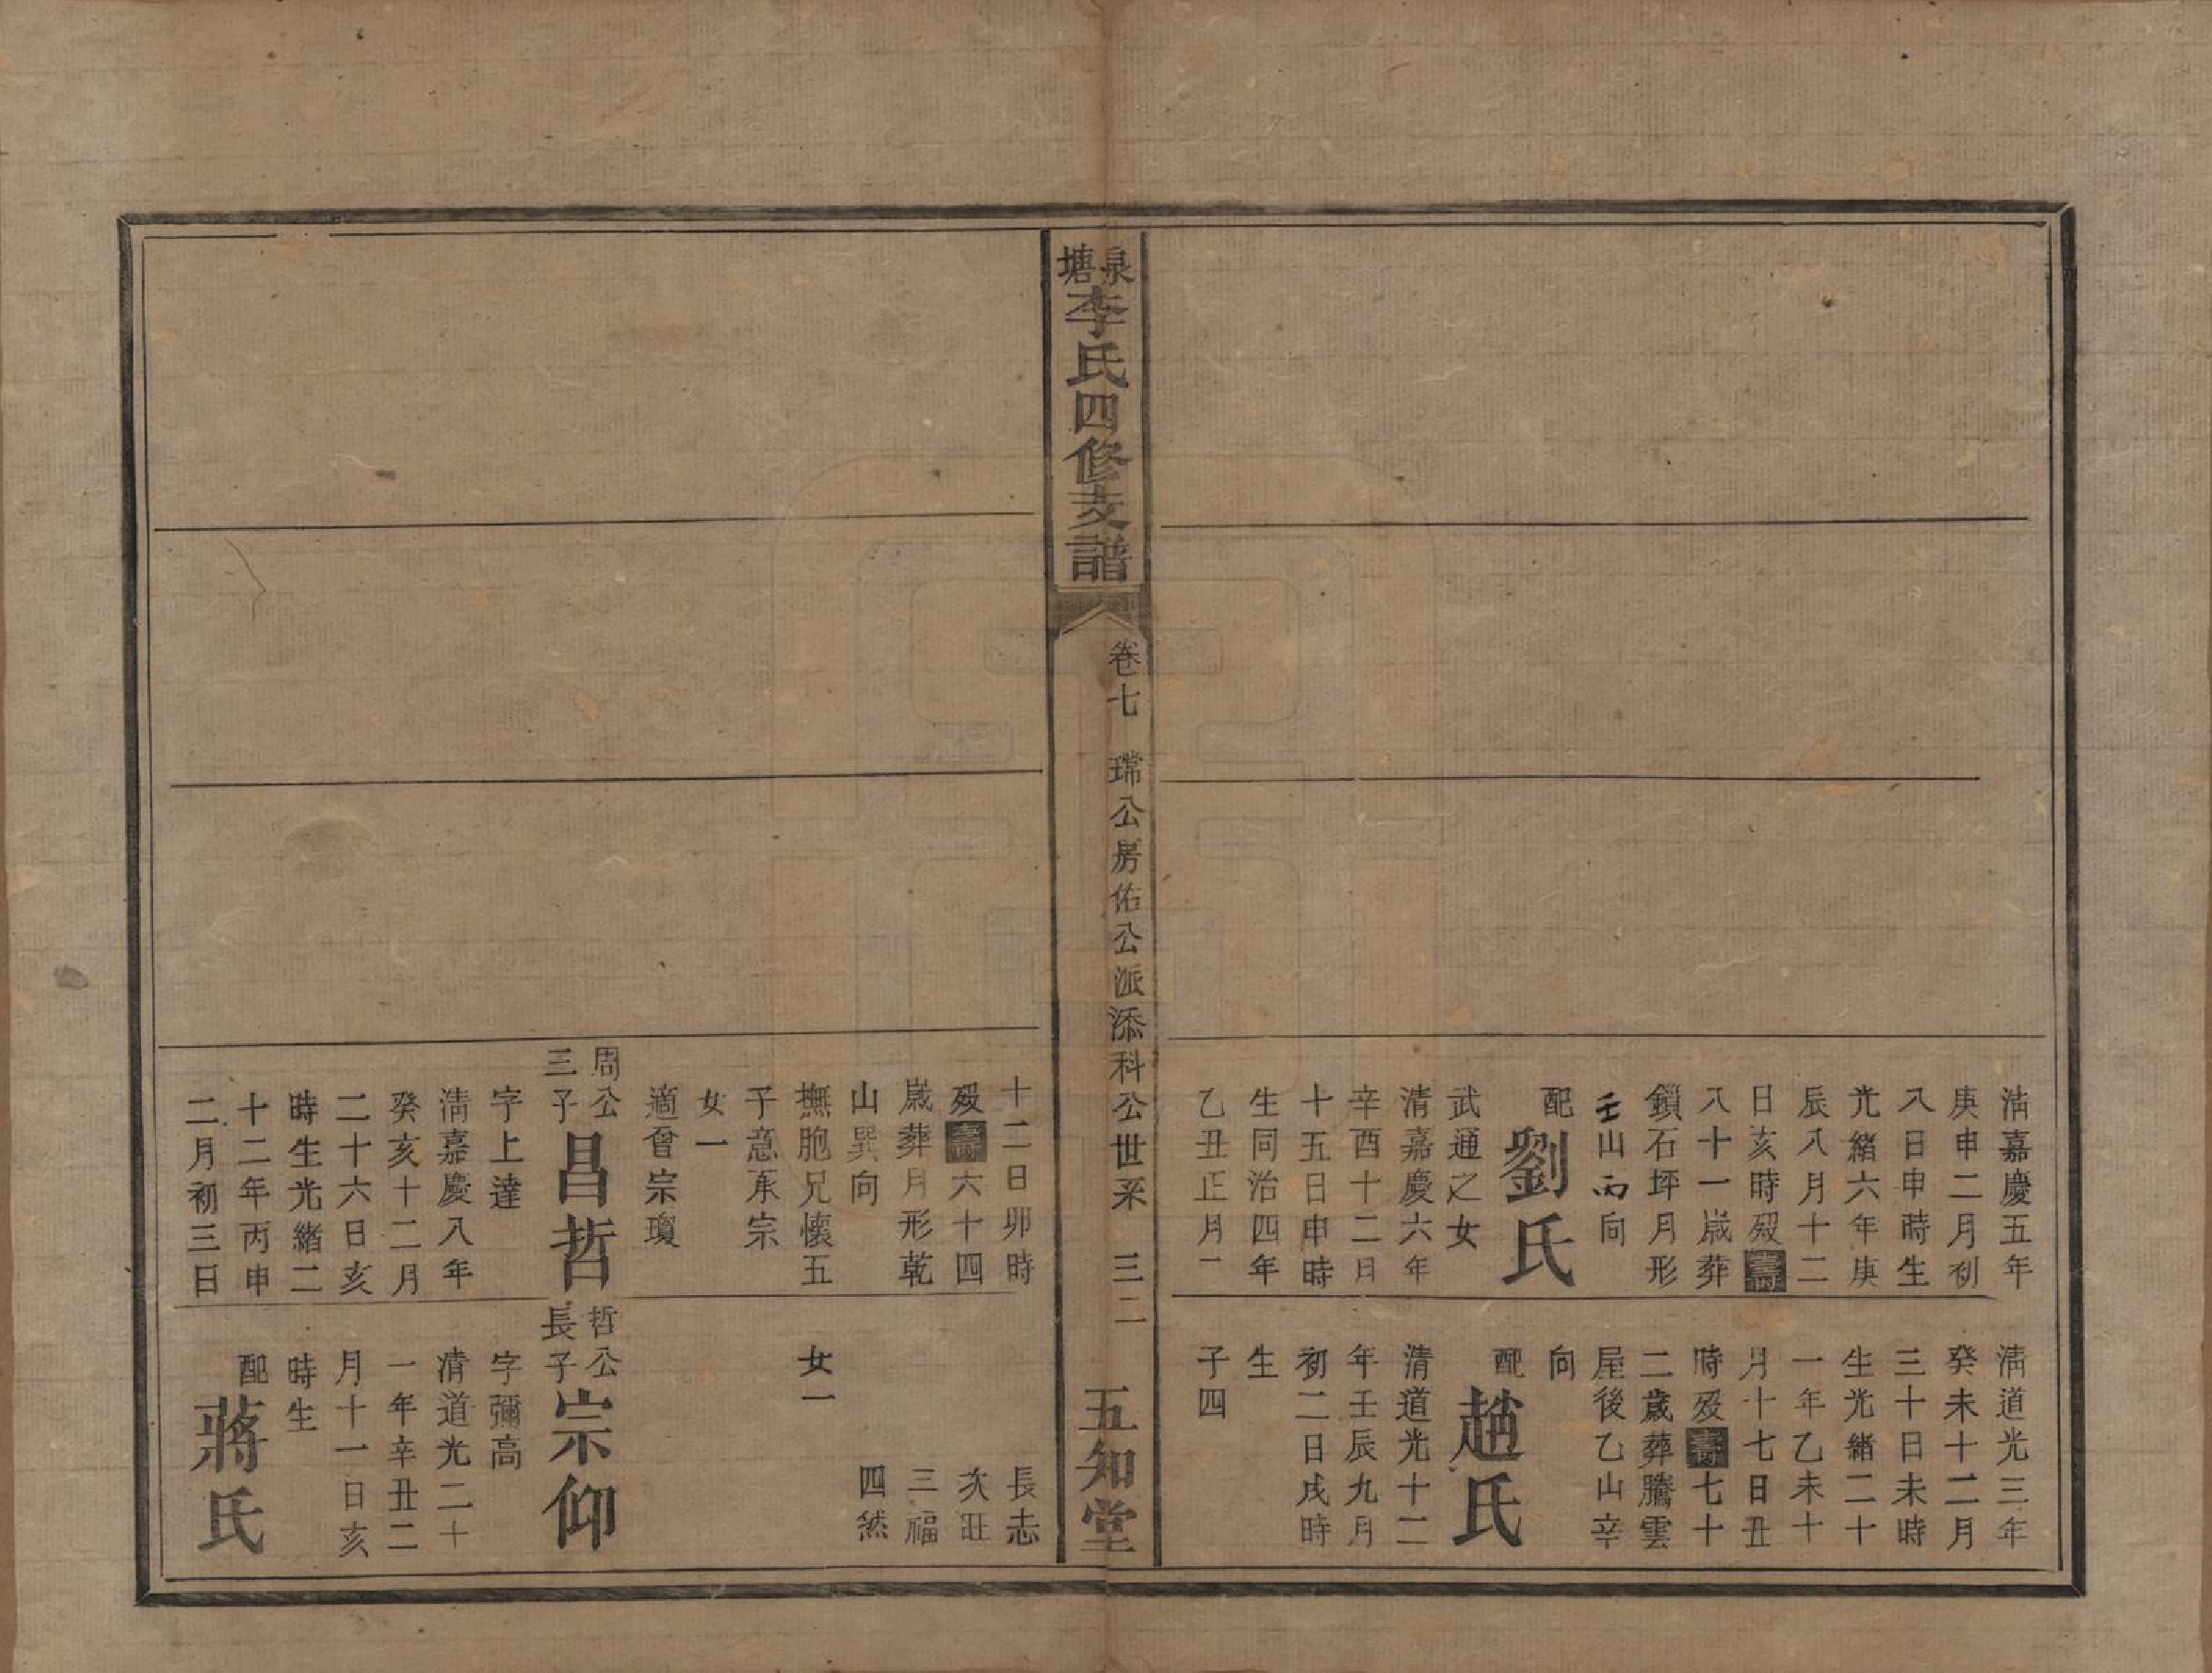 清嘉慶五年
庚申二月初
八日申時生
光緒六年庚
辰八月十二
日亥時歿壽
八十一歲葬
鎖石坪月形
壬山丙向
配劉氏
武通之女
清嘉慶六年
辛酉十二月
十五日申時
生同治四年
乙丑正月二
清道光三年
癸未十二月
三十日未時
生光緒二十
一年乙未十
月十七日丑
時歿壽七十
二歲葬騰雲
屋後乙山辛
向
配趙氏
清道光十二
年壬辰九月
初二日戌時
生
子四
泉塘李氏四修支譜
卷七
瑞公房佑公派添科公世系
三二
五知堂
十二日卯時
歿壽六十四
歲葬月形乾
山巽向
撫胞兄懷五
子意承宗
女一
適曾宗瓊
周公三子昌哲
字上達
清嘉慶八年
癸亥十二月
二十六日亥
時生光緒二
十二年丙申
二月初三日
長志
次旺
三福
四然
女一
哲公長子宗仰
字彌高
清道光二十
一年辛丑二
月十一日亥
時生
配蔣氏